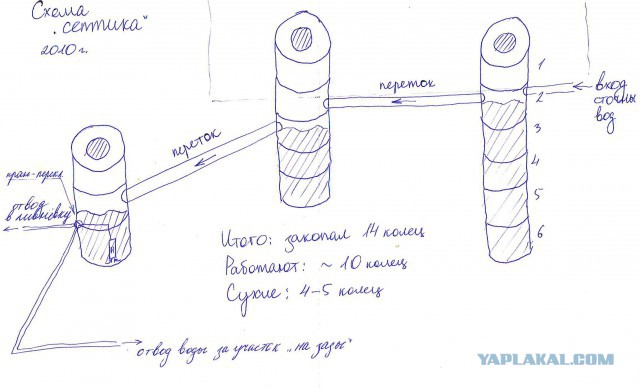 Схема
„септика"
2010г.
1
2
3
4
5
6
вход
сточных
вод
переток
переток
кран-перекл
отвод
в ливнёвку
Итого: закопал 14 колец
Работают: ~ 10 колец
Сухие: 4-5 колец
отвод воды за участок „на зады"
YAPLAKAL.COM